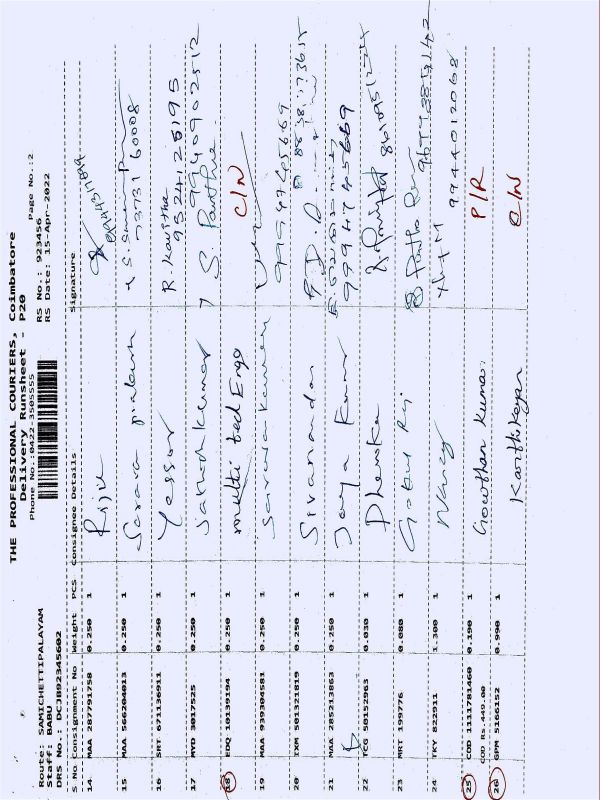 THE PROFESSIONAL COURIERS, Coimbatore
Delivery Runsheet - P20
Phone No.:0422 3505555 Page No.:2
Route: SAMICHETTIPALAYAM RS No.: 923456
Staff: BABU RS Date: 15-Apr-2022
DRS No.: DCJB92345602
S No Consignment No Weight PCS Consignee Details Signature
14 MAA 287791758 0.250 1 Rijil
15 MAA 566204013 0.250 1 73731 60008
16 SRT 671130911 0.250 1 Yessor R. Kavitha
17 MYD 3017525 0.250 1 Sathish Kumar 9940902512
18 EDQ 10139194 0.250 1 multi tech Engg C/N
19 MAA 939304581 0.250 1 Saravanakumar
20 IXM 501321819 0.250 1 Sivanandan
21 MAA 285213863 0.250 1 Jaya Kumar 9994745669
22 TCG 50152963 0.030 1 Dhenuka
23 MRT 199776 0.080 1 Gokul Raj
24 TKY 822911 1.300 1 Nancy 9944012068
25 COD 1111781460 0.190 1 Gowthan Kumar P/R
COD Rs.449.00
26 GPM 5166152 0.990 1 Karthikeyan C/N